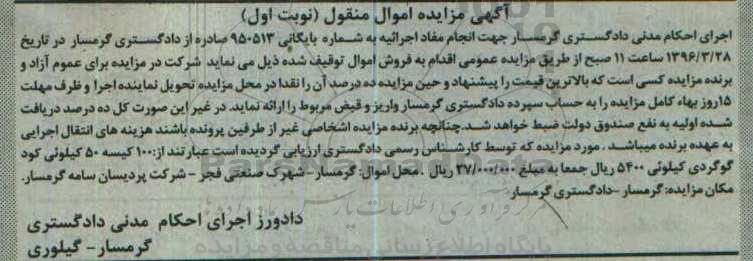 آگهی مزایده اموال منقول (نوبت اول)
اجرای احکام مدنی دادگستری گرمسار جهت انجام مفاد اجرائیه به شماره بایگانی ۹۵۰۵۱۳ صادره از دادگستری گرمسار در تاریخ
۱۳۹۶/۳/۲۸ ساعت ۱۱ صبح از طریق مزایده عمومی اقدام به فروش اموال توقیف شده ذیل می نماید شرکت در مزایده برای عموم آزاد و
برنده مزایده کسی است که بالاترین قیمت را پیشنهاد و حین مزایده ده درصد آن را نقدا در محل مزایده تحویل نماینده اجرا و ظرف مهلت
۱۵روز بهاء کامل مزایده را به حساب سپرده دادگستری گرمسار واریز و قبض مربوط را ارائه نماید. در غیر این صورت کل ده درصد دریافت
شده اولیه به نفع صندوق دولت ضبط خواهد شد.چنانچه برنده مزایده اشخاصی غیر از طرفین پرونده باشند هزینه های انتقال اجرایی
به عهده برنده میباشد . مورد مزایده که توسط کارشناس رسمی دادگستری ارزیابی گردیده است عبارتند از:۱۰۰ کیسه ۵۰ کیلوئی کود
گوگردی کیلوئی ۵۴۰۰ ریال جمعا به مبلغ ۲۷/۰۰۰/۰۰۰ ریال . محل اموال: گرمسار- شهرک صنعتی فجر - شرکت پردیسان سامه گرمسار.
مکان مزایده: گرمسار -دادگستری گرمسار
دادورز اجرای احکام مدنی دادگستری
گرمسار - گیلوری